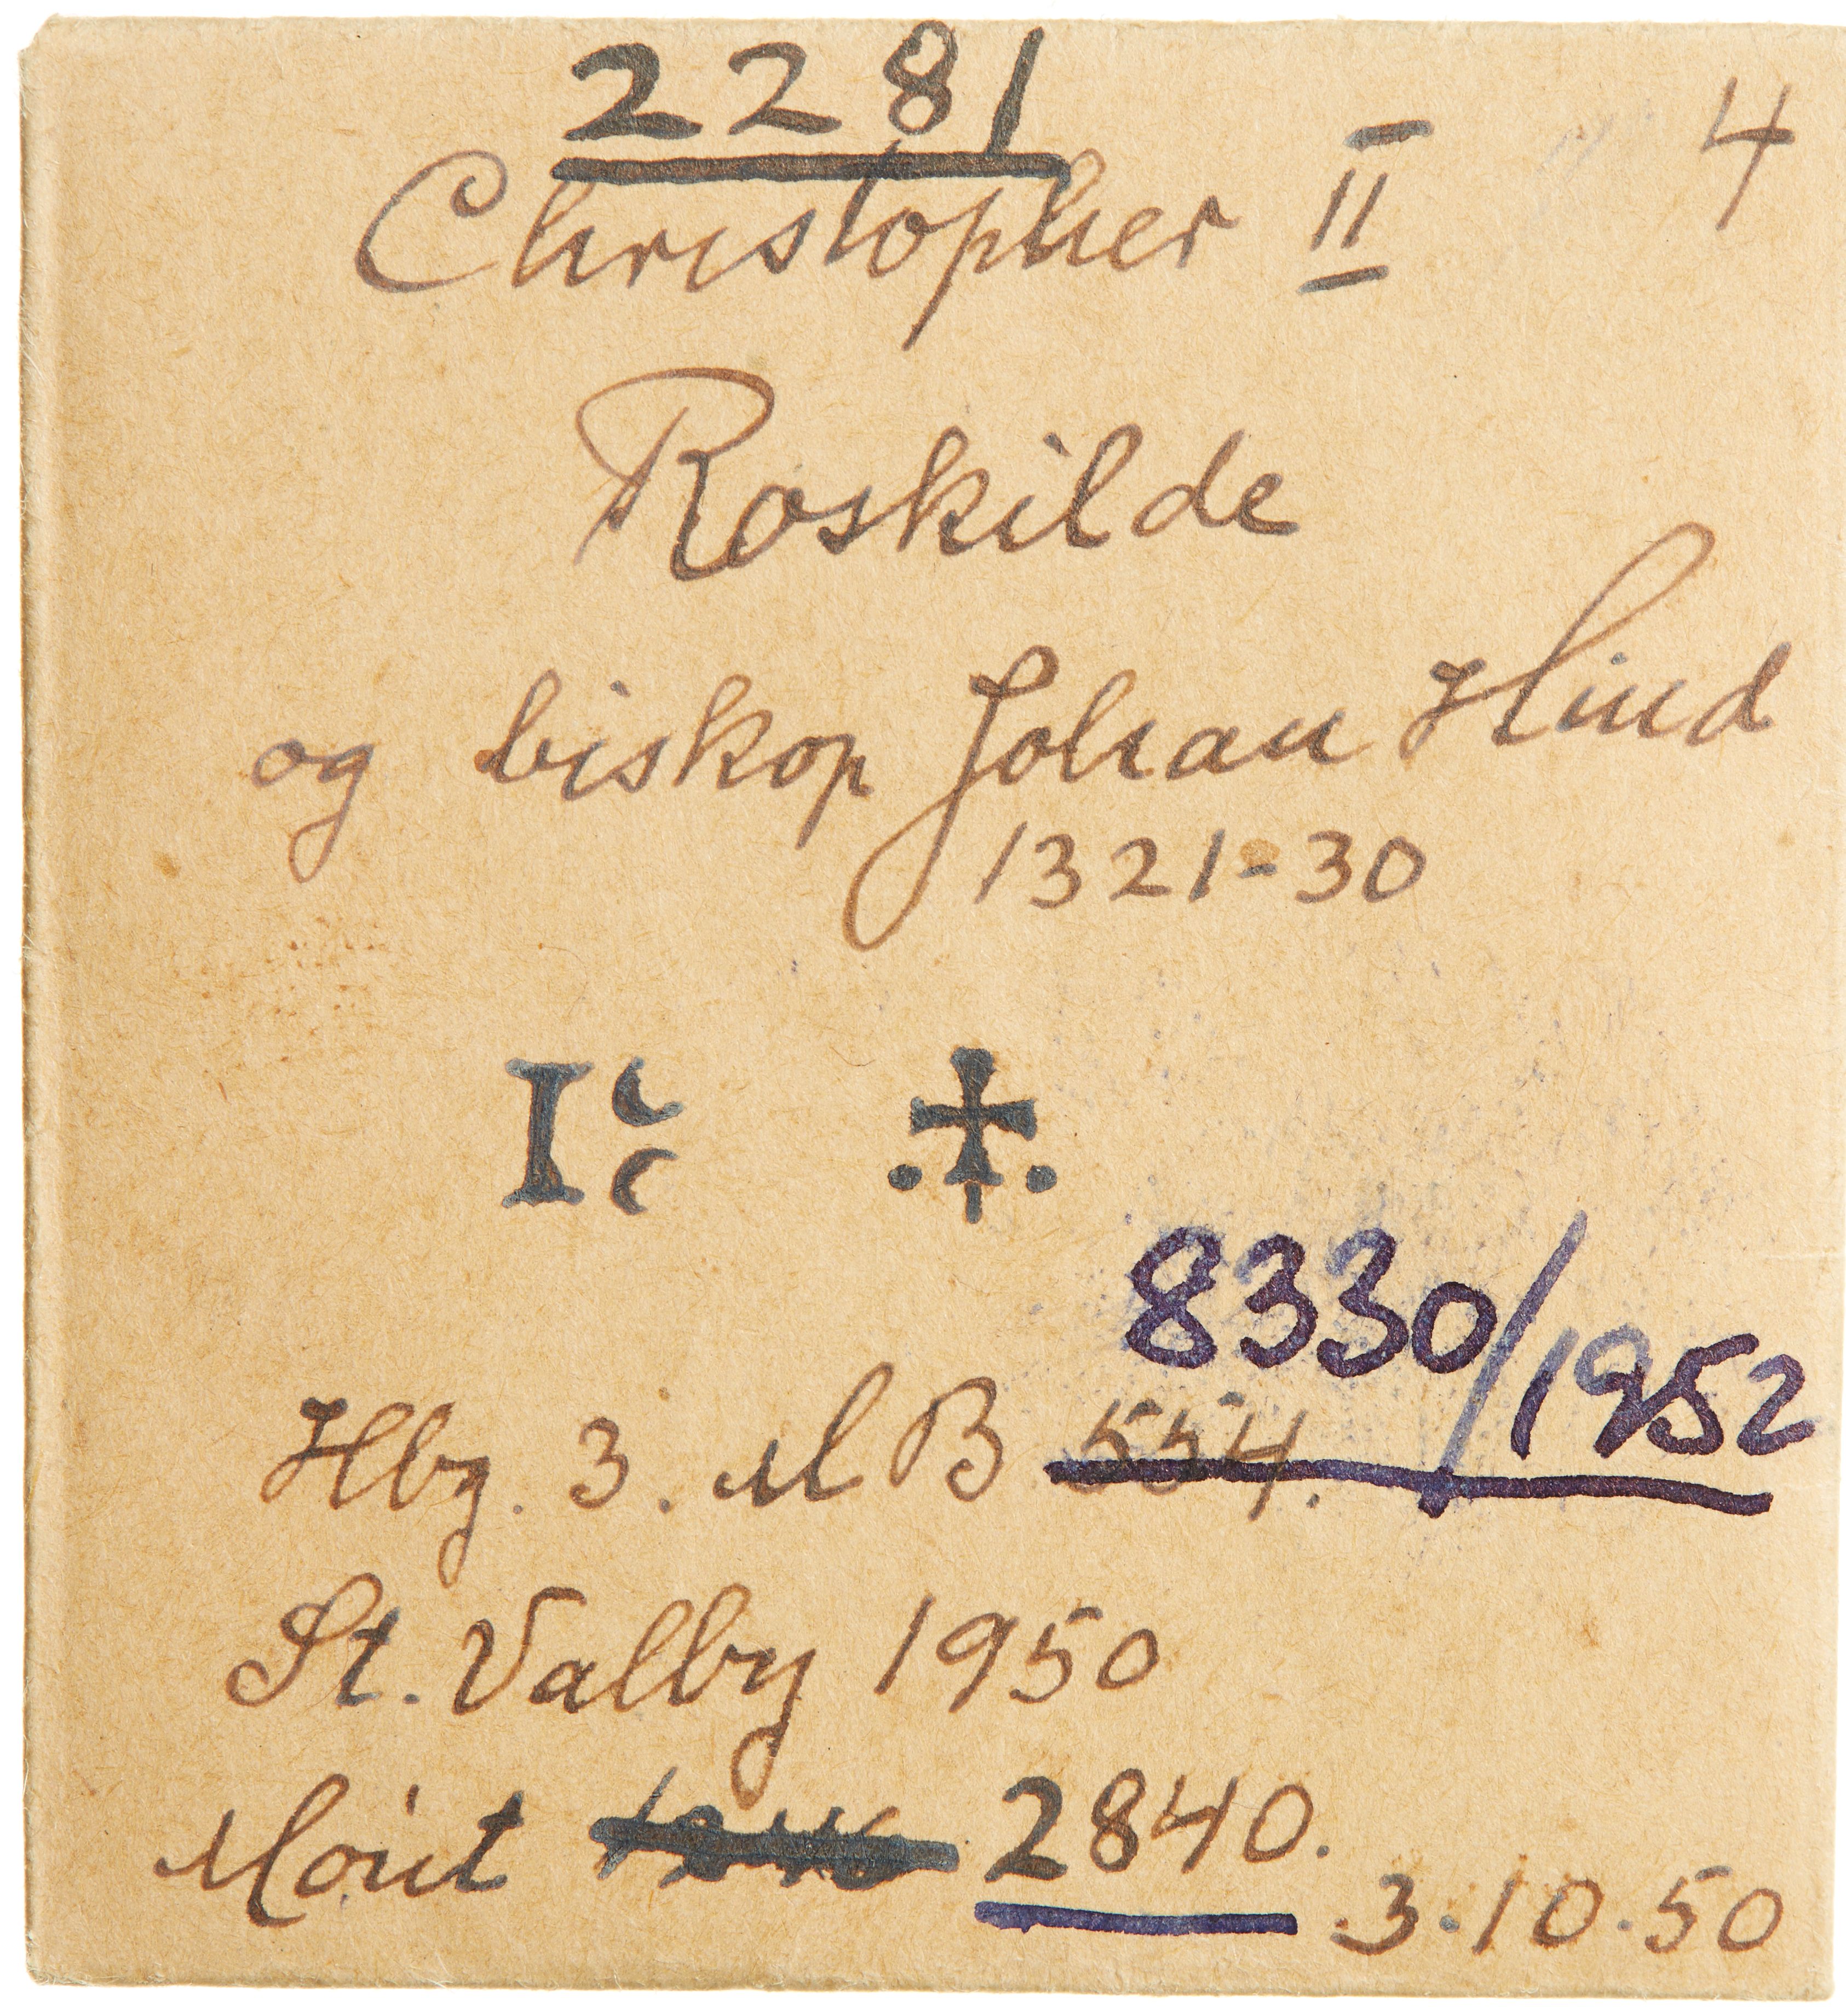 2281
Christopher II 4
Roskilde
og biskop Johan Hind
1321-30
8330/1952
Hbg. 3. MB 554.
St. Valby 1950
2840.
3.10.50